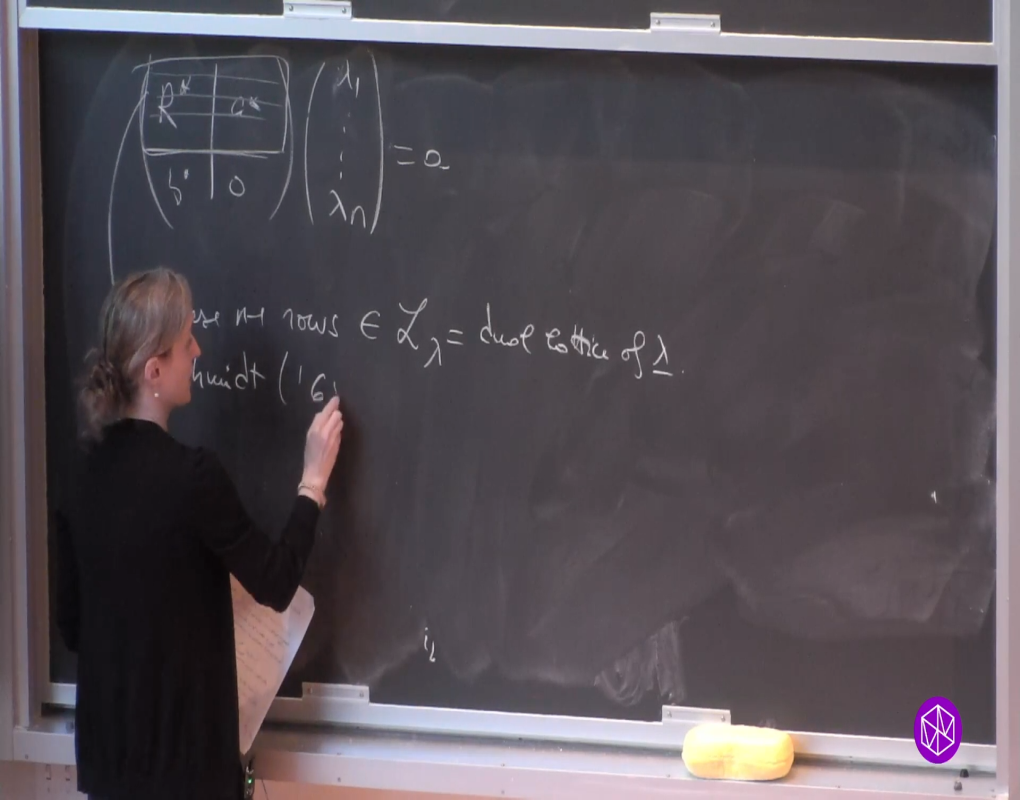 R* a* λ₁
⋮ = 0
b* 0 λn
n-1 rows ∈ ℒ_λ = dual lattice of λ.
hmidt ('6